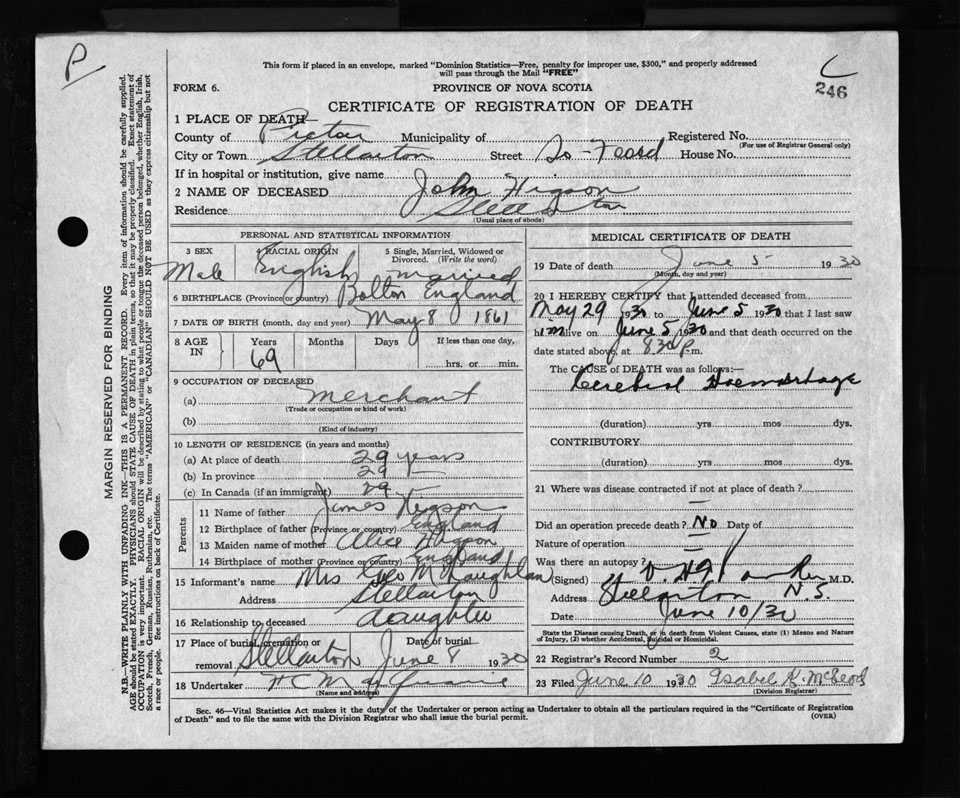 P
This form if placed in an envelope, marked "Dominion Statistics—Free, penalty for improper use, $300," and properly addressed
will pass through the Mail "FREE"
C
246
FORM 6.
PROVINCE OF NOVA SCOTIA
CERTIFICATE OF REGISTRATION OF DEATH
1 PLACE OF DEATH
County of Pictou Municipality of Registered No.
(For use of Registrar General only)
City or Town Stellarton Street So - Foord House No.
If in hospital or institution, give name
2 NAME OF DECEASED John Higson
Residence Stellarton
(Usual place of abode)
PERSONAL AND STATISTICAL INFORMATION
3 SEX 4 RACIAL ORIGIN 5 Single, Married, Widowed or Divorced. (Write the word)
Male English married
6 BIRTHPLACE (Province or country) Bolton England
7 DATE OF BIRTH (month, day and year) May 8 1861
8 AGE IN Years Months Days If less than one day,
69 hrs. or min.
9 OCCUPATION OF DECEASED
(a) merchant
(Trade or occupation or kind of work)
(b)
(Kind of industry)
10 LENGTH OF RESIDENCE (in years and months)
(a) At place of death 29 years
(b) In province 29 —
(c) In Canada (if an immigrant) 29 —
Parents
11 Name of father James Higson
12 Birthplace of father (Province or country) England
13 Maiden name of mother Alice Higson
14 Birthplace of mother (Province or country) England
15 Informant's name Mrs Geo McLaughlan
Address Stellarton
16 Relationship to deceased daughter
17 Place of burial, cremation or removal Stellarton Date of burial June 8 1930
18 Undertaker
(Name and address)
MEDICAL CERTIFICATE OF DEATH
19 Date of death June 5 1930
(Month, day and year)
20 I HEREBY CERTIFY that I attended deceased from
May 29 1930 to June 5 1930 that I last saw
him alive on June 5 1930 and that death occurred on
date stated above, at 8 30 p.m.
The CAUSE of DEATH was as follows:
Cerebral Haemorrhage
(duration) yrs mos dys.
CONTRIBUTORY
(duration) yrs mos dys.
21 Where was disease contracted if not at place of death?
—
Did an operation precede death? No Date of
Nature of operation —
Was there an autopsy?
(Signed) M.D.
Address Stellarton N.S.
Date June 10/30
State the Disease causing Death, or in death from Violent Causes, state (1) Means and Nature
of Injury, (2) whether Accidental, Suicidal or Homicidal.
22 Registrar's Record Number 2
23 Filed June 10 1930 Isabel K. McLeod
(Division Registrar)
Sec. 46—Vital Statistics Act makes it the duty of the Undertaker or person acting as Undertaker to obtain all the particulars required in the "Certificate of Registration
of Death" and to file the same with the Division Registrar who shall issue the burial permit.
(OVER)
MARGIN RESERVED FOR BINDING
N.B.—WRITE PLAINLY WITH UNFADING INK—THIS IS A PERMANENT RECORD. Every item of information should be carefully supplied.
AGE should be stated EXACTLY. PHYSICIANS should STATE CAUSE OF DEATH in plain terms, so that it may be properly classified. Exact statement of
OCCUPATION is very important. RACIAL ORIGIN will be described by stating to what people or tongue the deceased person belonged, whether English, Irish,
Scotch, French, German, Russian, Ruthenian, etc. The terms "AMERICAN" or "CANADIAN" SHOULD NOT BE USED as they express citizenship but not
a race or people. See instructions on back of Certificate.